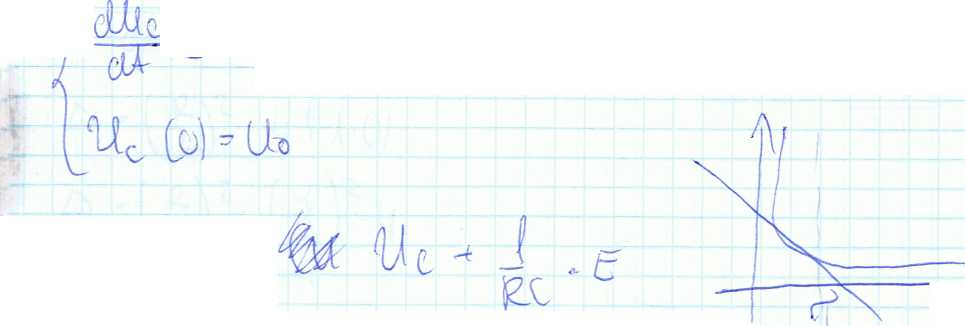 dUc/dt =
Uc (0) = U0
Uc + 1/RC · E